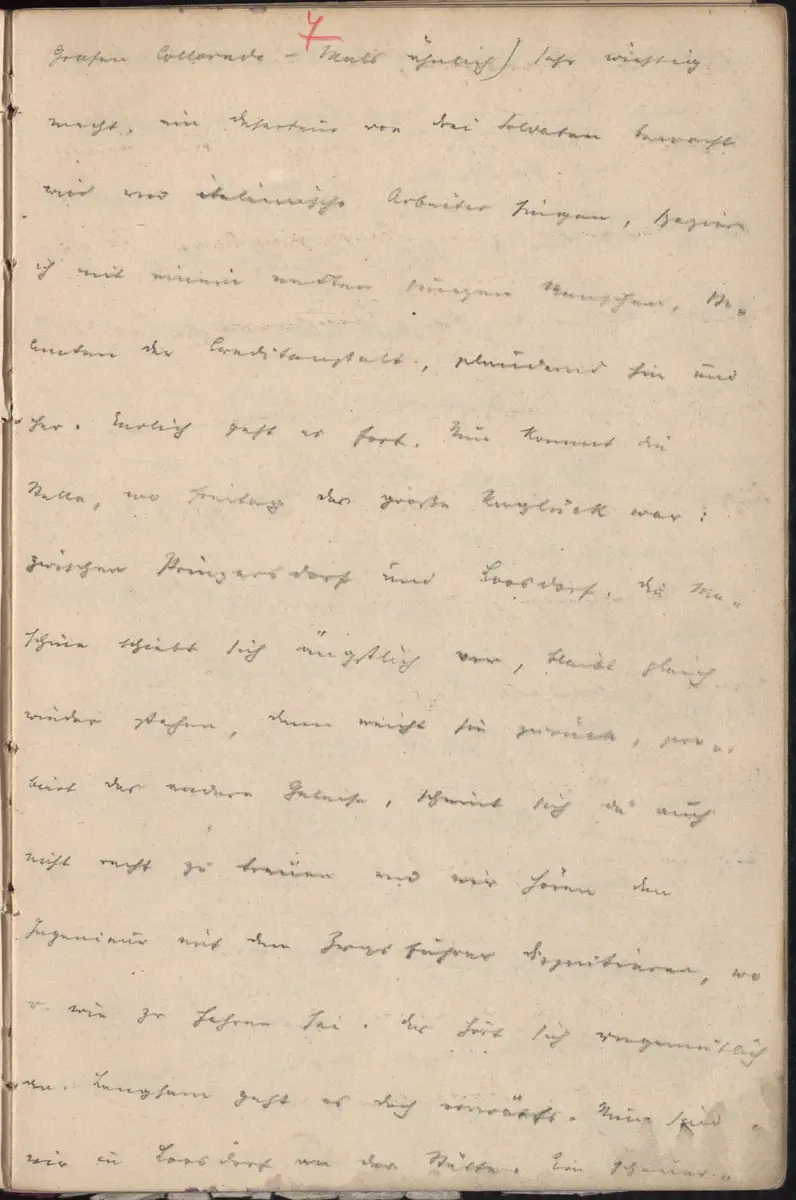 7
Grafen Colloredo - Mels ähnlich) sehr wichtig
macht, ein Deserteur von drei Soldaten bewacht
wird und italienische Arbeiter singen, spazier
ich mit einem netten jungen Menschen, Be-
amten der Creditanstalt, plaudernd hin und
her. Endlich geht es fort. Nun kommt die
Stelle, wo Freitag das große Unglück war:
zwischen Prinzersdorf und Loosdorf. Die Ma-
schine schiebt sich ängstlich vor, bleibt gleich
wieder stehen, dann weicht sie zurück, pro-
biert das andere Geleise, scheint sich da auch
nicht recht zu trauen und wir hören den
Ingenieur mit dem Zugsführer disputieren, wo
u. wie zu fahren sei. Das hört sich ungemütlich
an. Langsam geht es doch vorwärts. Nun sind
wir in Loosdorf an der Stätte. Ein